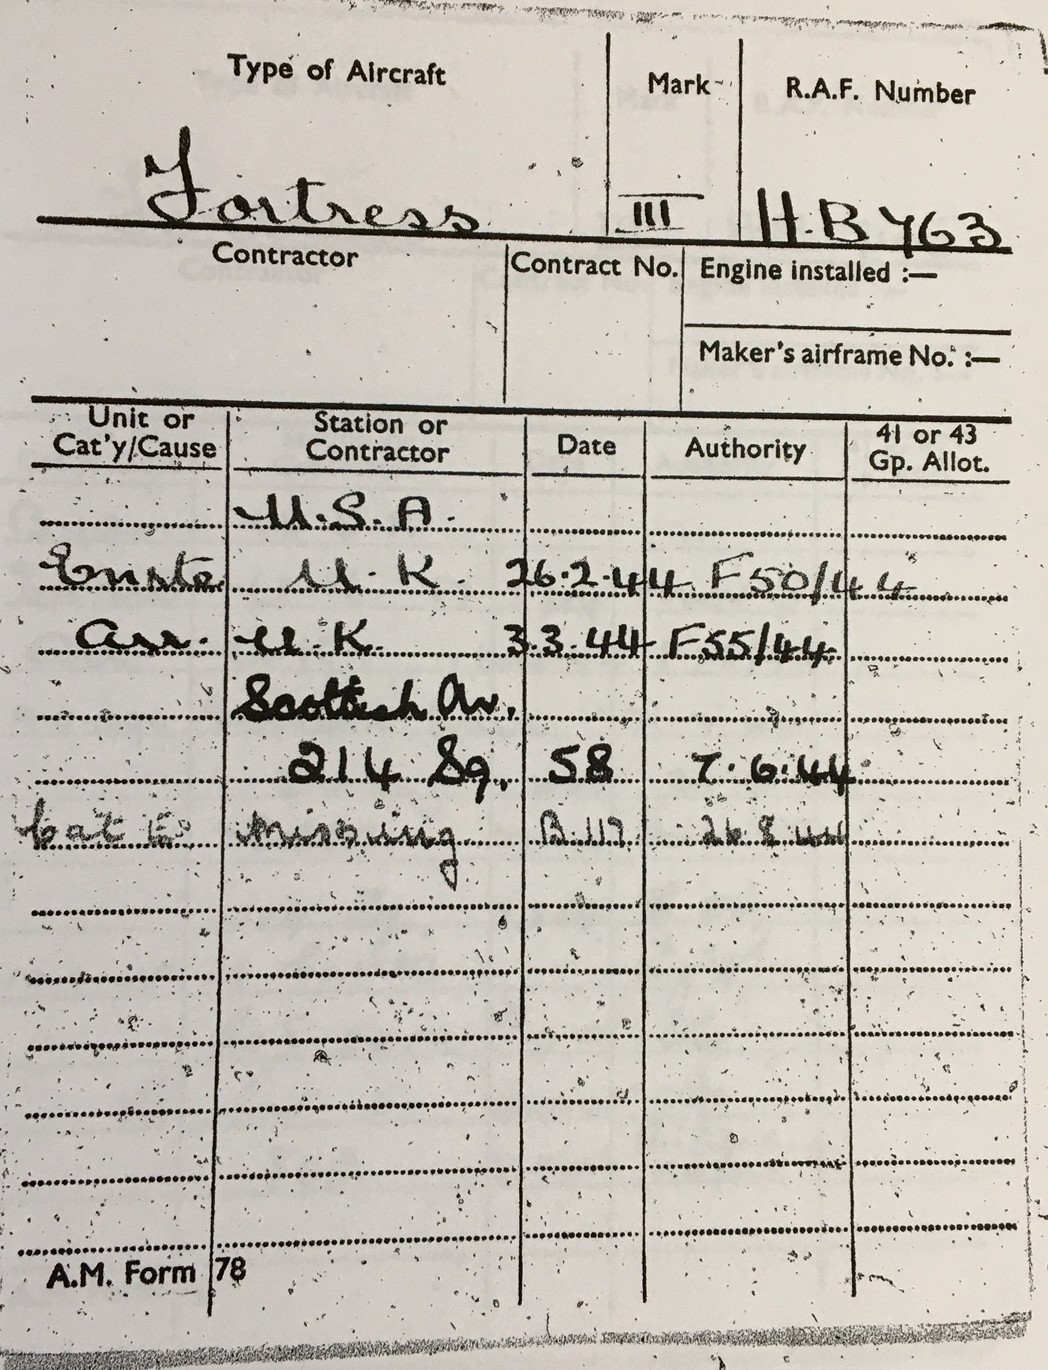 Type of Aircraft Mark R.A.F. Number
Fortress III H.B 763
Contractor Contract No. Engine installed :—
Maker's airframe No. :—
Unit or Cat'y/Cause Station or Contractor Date Authority 41 or 43 Gp. Allot.
U.S.A.
Enrte U.K. 26.2.44 F50/44
Arr. U.K. 3.3.44 F55/44
Scottish Av.
214 Sq. 58 7.6.44
Cat E. Missing B.117 26 8 44
A.M. Form 78